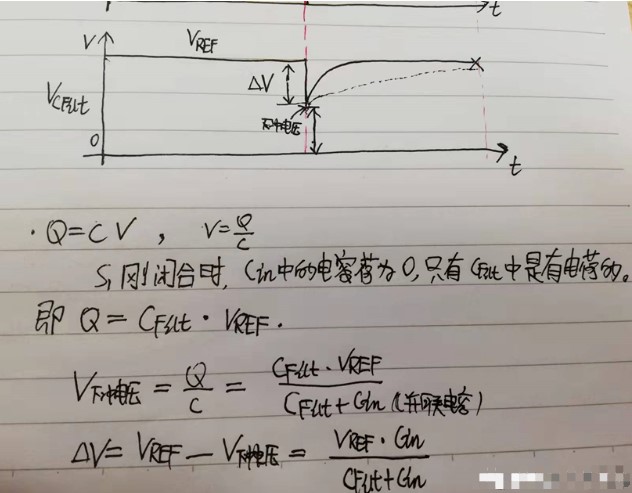 t
V
VREF
ΔV
VCFilt
下冲电压
0
t
· Q=CV , V=Q/C
S₁刚闭合时, Cin中的电容荷为0,只有CFilt中是有电荷的。
即 Q = CFilt · VREF .
V下冲电压 = Q/C = CFilt · VREF / CFilt + Cin (并联电容)
ΔV= VREF — V下冲电压 = VREF · Cin / CFilt + Cin